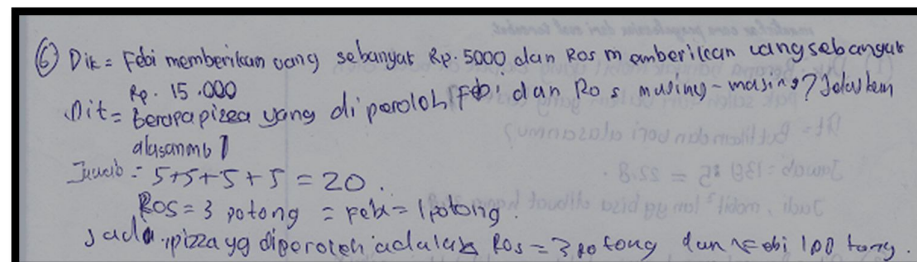 ⑥ Dik = Febi memberikan uang sebanyak Rp. 5000 dan Ros memberikan uang sebanyak
Rp. 15.000
Dit = berapa pizza yang diperoleh Febi dan Ros masing-masing? Jelaskan
alasanmu!
Jawab = 5+5+5+5 = 20.
Ros = 3 potong = Febi = 1 potong.
Jada pizza yg diperoleh adalah Ros = 3 potong dan Febi 1 potong.